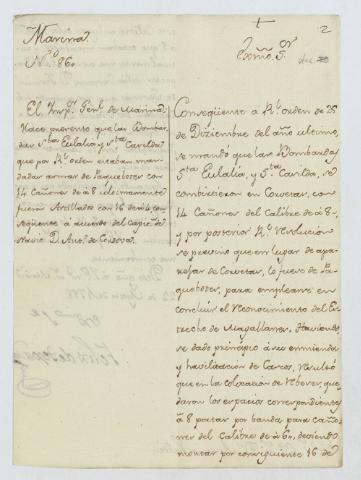 2
Marina
N.º 860
Exmo. Sor.
El Insp.r Gen.l de Marina
Hace presente que las Bombar-
das S.ta Eulalia y S.ta Casilda
que por R.l orden estaban man-
dadas armar de Paquebotes con
14 Cañones de à 8 ultimamente
fueron Artillados con 16 de à 6 con-
seqüente à acuerdo del Capit.n de
Navio D. Ant.o de Cordova.
Conseqüente à R.l orden de 26
de Diziembre del año ultimo,
se mandó que las Bombardas
S.ta Eulalia, y S.ta Casilda, se
combirtiesen en Corvetas, con
14 Cañones del Calibre de à 8,
y por posterior R.l resolucion
se previno que en lugar de apa-
rejar de Corvetas, lo fuesen de Pa-
quebotes, para emplearse en
concluir el reconocimiento del Es-
trecho de Magallanes. Haviendo-
se dado principio à su enmienda
y havilitacion de Cascos, resultó
que en la colocacion de
daron los espacios correspondientes
à 8 portas por banda, para caño-
nes del Calibre de à 6, deviendo
montar por consiguiente 16 de